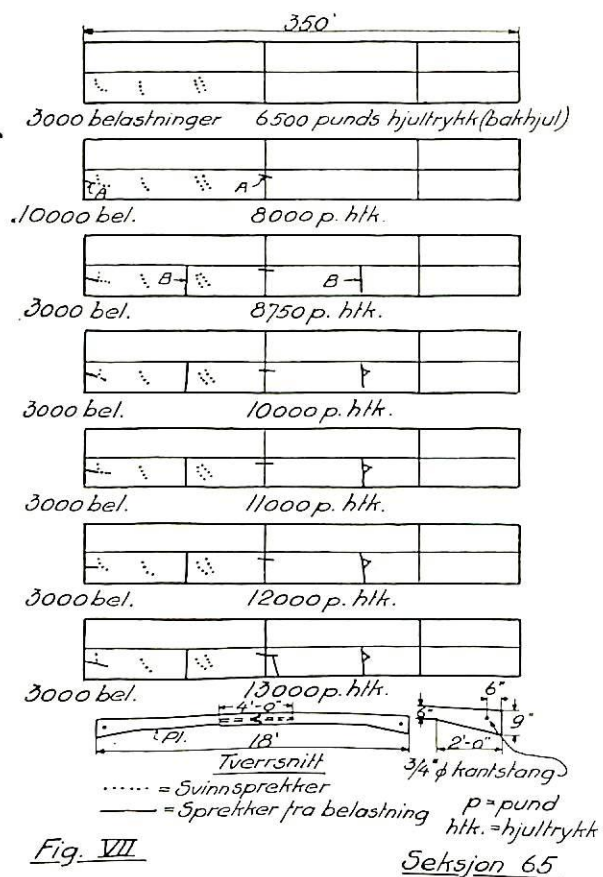 350'
3000 belastninger 6500 punds hjultrykk (bakhjul)
A A
10000 bel. 8000 p. htk.
B B
3000 bel. 8750 p. htk.
3000 bel. 10000 p. htk.
3000 bel. 11000 p. htk.
3000 bel. 12000 p. htk.
3000 bel. 13000 p. htk.
4'-0" 6"
6" 9"
Pl. 18' 2'-0"
Tverrsnitt 3/4" ϕ kantstang
...... = Svinnsprekker
—— = Sprekker fra belastning
p = pund
htk. = hjultrykk
Fig. VII
Seksjon 65